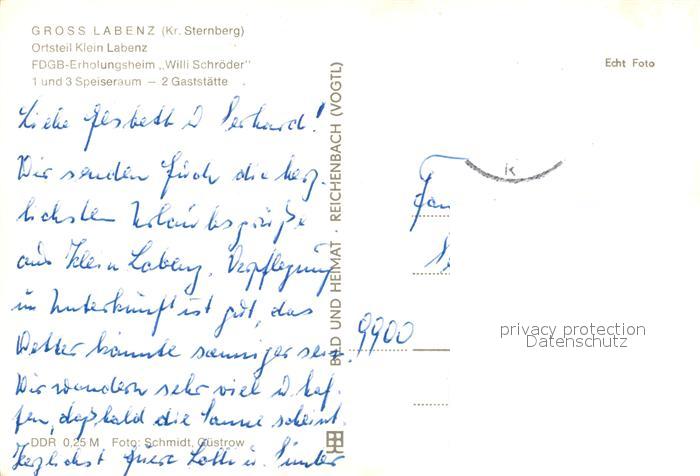 GROSS LABENZ (Kr. Sternberg)
Ortsteil Klein Labenz
FDGB-Erholungsheim „Willi Schröder"
1 und 3 Speiseraum — 2 Gaststätte
Echt Foto
Liebe & Gerhard!
Wir senden Euch die herz-
lichsten Urlaubsgrüße
aus Klein Labenz. Verpflegung
u. Unterkunft ist gut, das
Wetter könnte sonniger sein.
Wir wandern sehr viel & hof-
fen, daß bald die Sonne scheint.
Herzlichst Eure Lotti u. Günter
BILD UND HEIMAT · REICHENBACH (VOGTL)
Fam
9900
privacy protection
Datenschutz
DDR 0,25 M Foto: Schmidt, Güstrow